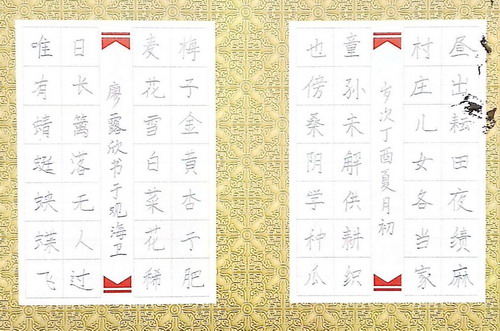 昼出耘田夜绩麻
村庄儿女各当家
岁次丁酉夏月初
童孙未解供耕织
也傍桑阴学种瓜
梅子金黄杏子肥
麦花雪白菜花稀
廖露欣书于观海卫
日长篱落无人过
唯有蜻蜓蛱蝶飞